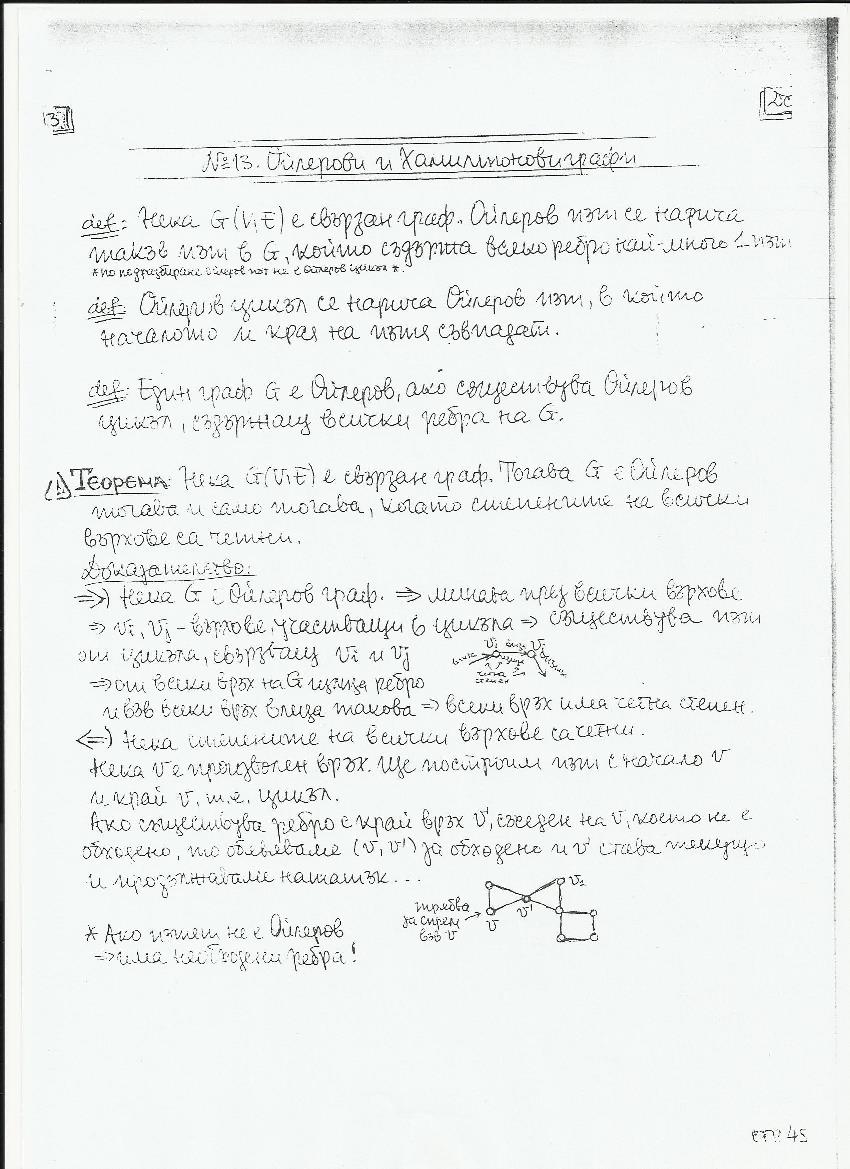 13
№13. Ойлерови и Хамилтонови графи
def: Нека G(V,E) е свързан граф. Ойлеров път се нарича
такъв път в G, който съдържа всяко ребро най-много 1 път
* по подразбиране Ойлеров път не е Ойлеров цикъл *.
def: Ойлеров цикъл се нарича Ойлеров път, в който
началото и края на пътя съвпадат.
def: Един граф G е Ойлеров, ако съществува Ойлеров
цикъл, съдържащ всички ребра на G.
(1) Теорема: Нека G(V,E) е свързан граф. Тогава G е Ойлеров
тогава и само тогава, когато степените на всички
върхове са четни.
Доказателство:
⇒) Нека G е Ойлеров граф. ⇒ минава през всички върхове
⇒ vi, vj - върхове, участващи в цикъла ⇒ съществува път
от цикъла, свързващ vi и vj
vi vj
четна
степен
⇒ от всеки връх на G излиза ребро
и във всеки връх влиза такова ⇒ всеки връх има четна степен.
⇐) Нека степените на всички върхове са четни.
Нека v е произволен връх. Ще построим път с начало v
и край v, т.е. цикъл.
Ако съществува ребро с край връх v', съседен на v, което не е
обходено, то обявяваме (v, v') за обходено и v' става текущ
и продължаваме нататък...
трябва
да спрем
във v
v v' v2
* Ако пътят не е Ойлеров
⇒ има необходени ребра!
стр 45